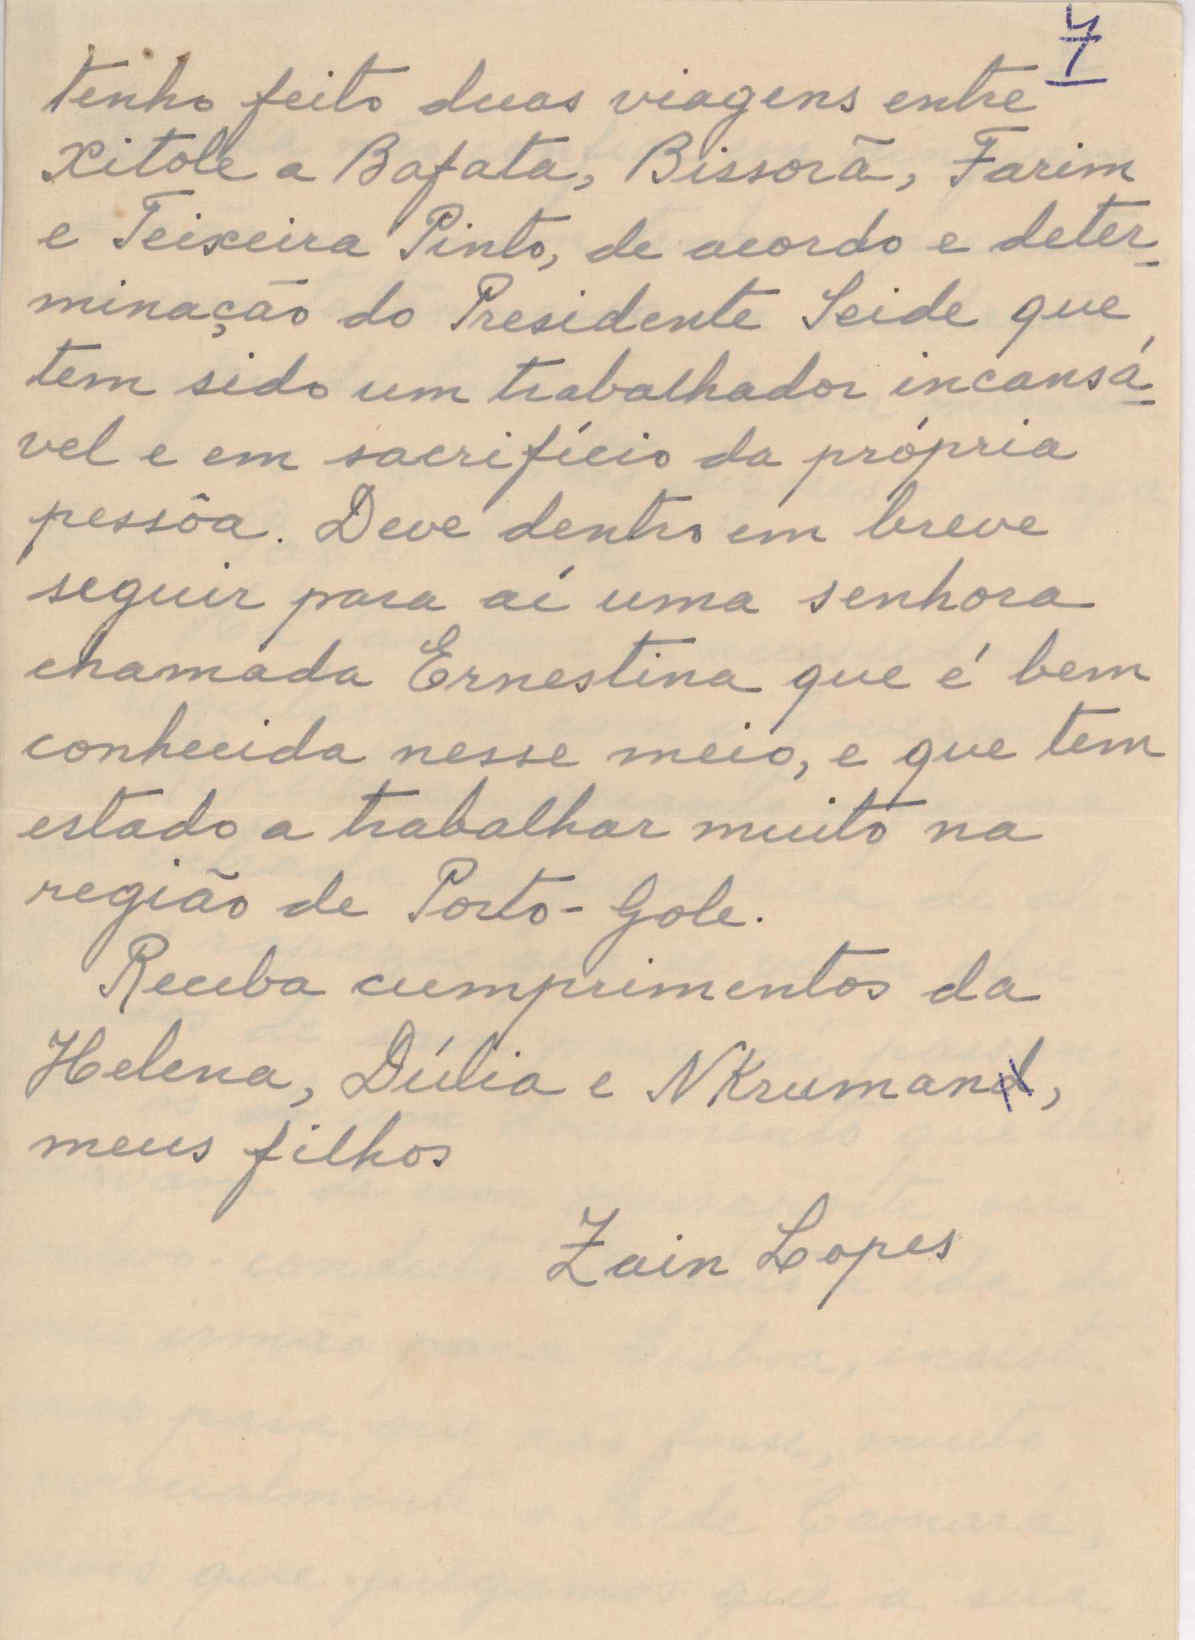 7
tenho feito duas viagens entre
Xitole a Bafata, Bissorã, Farim
e Teixeira Pinto, de acordo e deter-
minação do Presidente Seide que
tem sido um trabalhador incansá-
vel e em sacrifício da própria
pessôa. Deve dentro em breve
seguir para aí uma senhora
chamada Ernestina que é bem
conhecida nesse meio, e que tem
estado a trabalhar muito na
região de Porto-Gole.
Receba cumprimentos da
Helena, Dúlia e NKruman,
meus filhos
Zain Lopes